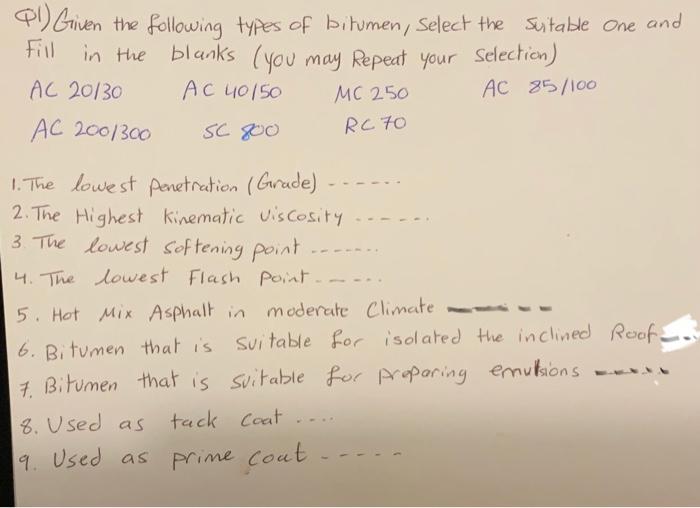 Q1) Given the following types of bitumen, select the suitable one and
Fill in the blanks (you may Repeat your selection)
AC 20/30 AC 40/50 MC 250 AC 85/100
AC 200/300 SC 800 RC 70
1. The lowest penetration (Grade) ------
2. The Highest kinematic viscosity ------
3. The lowest softening point -------
4. The lowest Flash point -----
5. Hot Mix Asphalt in moderate Climate -----
6. Bitumen that is suitable for isolated the inclined Roof ---
7. Bitumen that is suitable for preparing emulsions -----
8. Used as tack coat ----
9. Used as prime coat -----